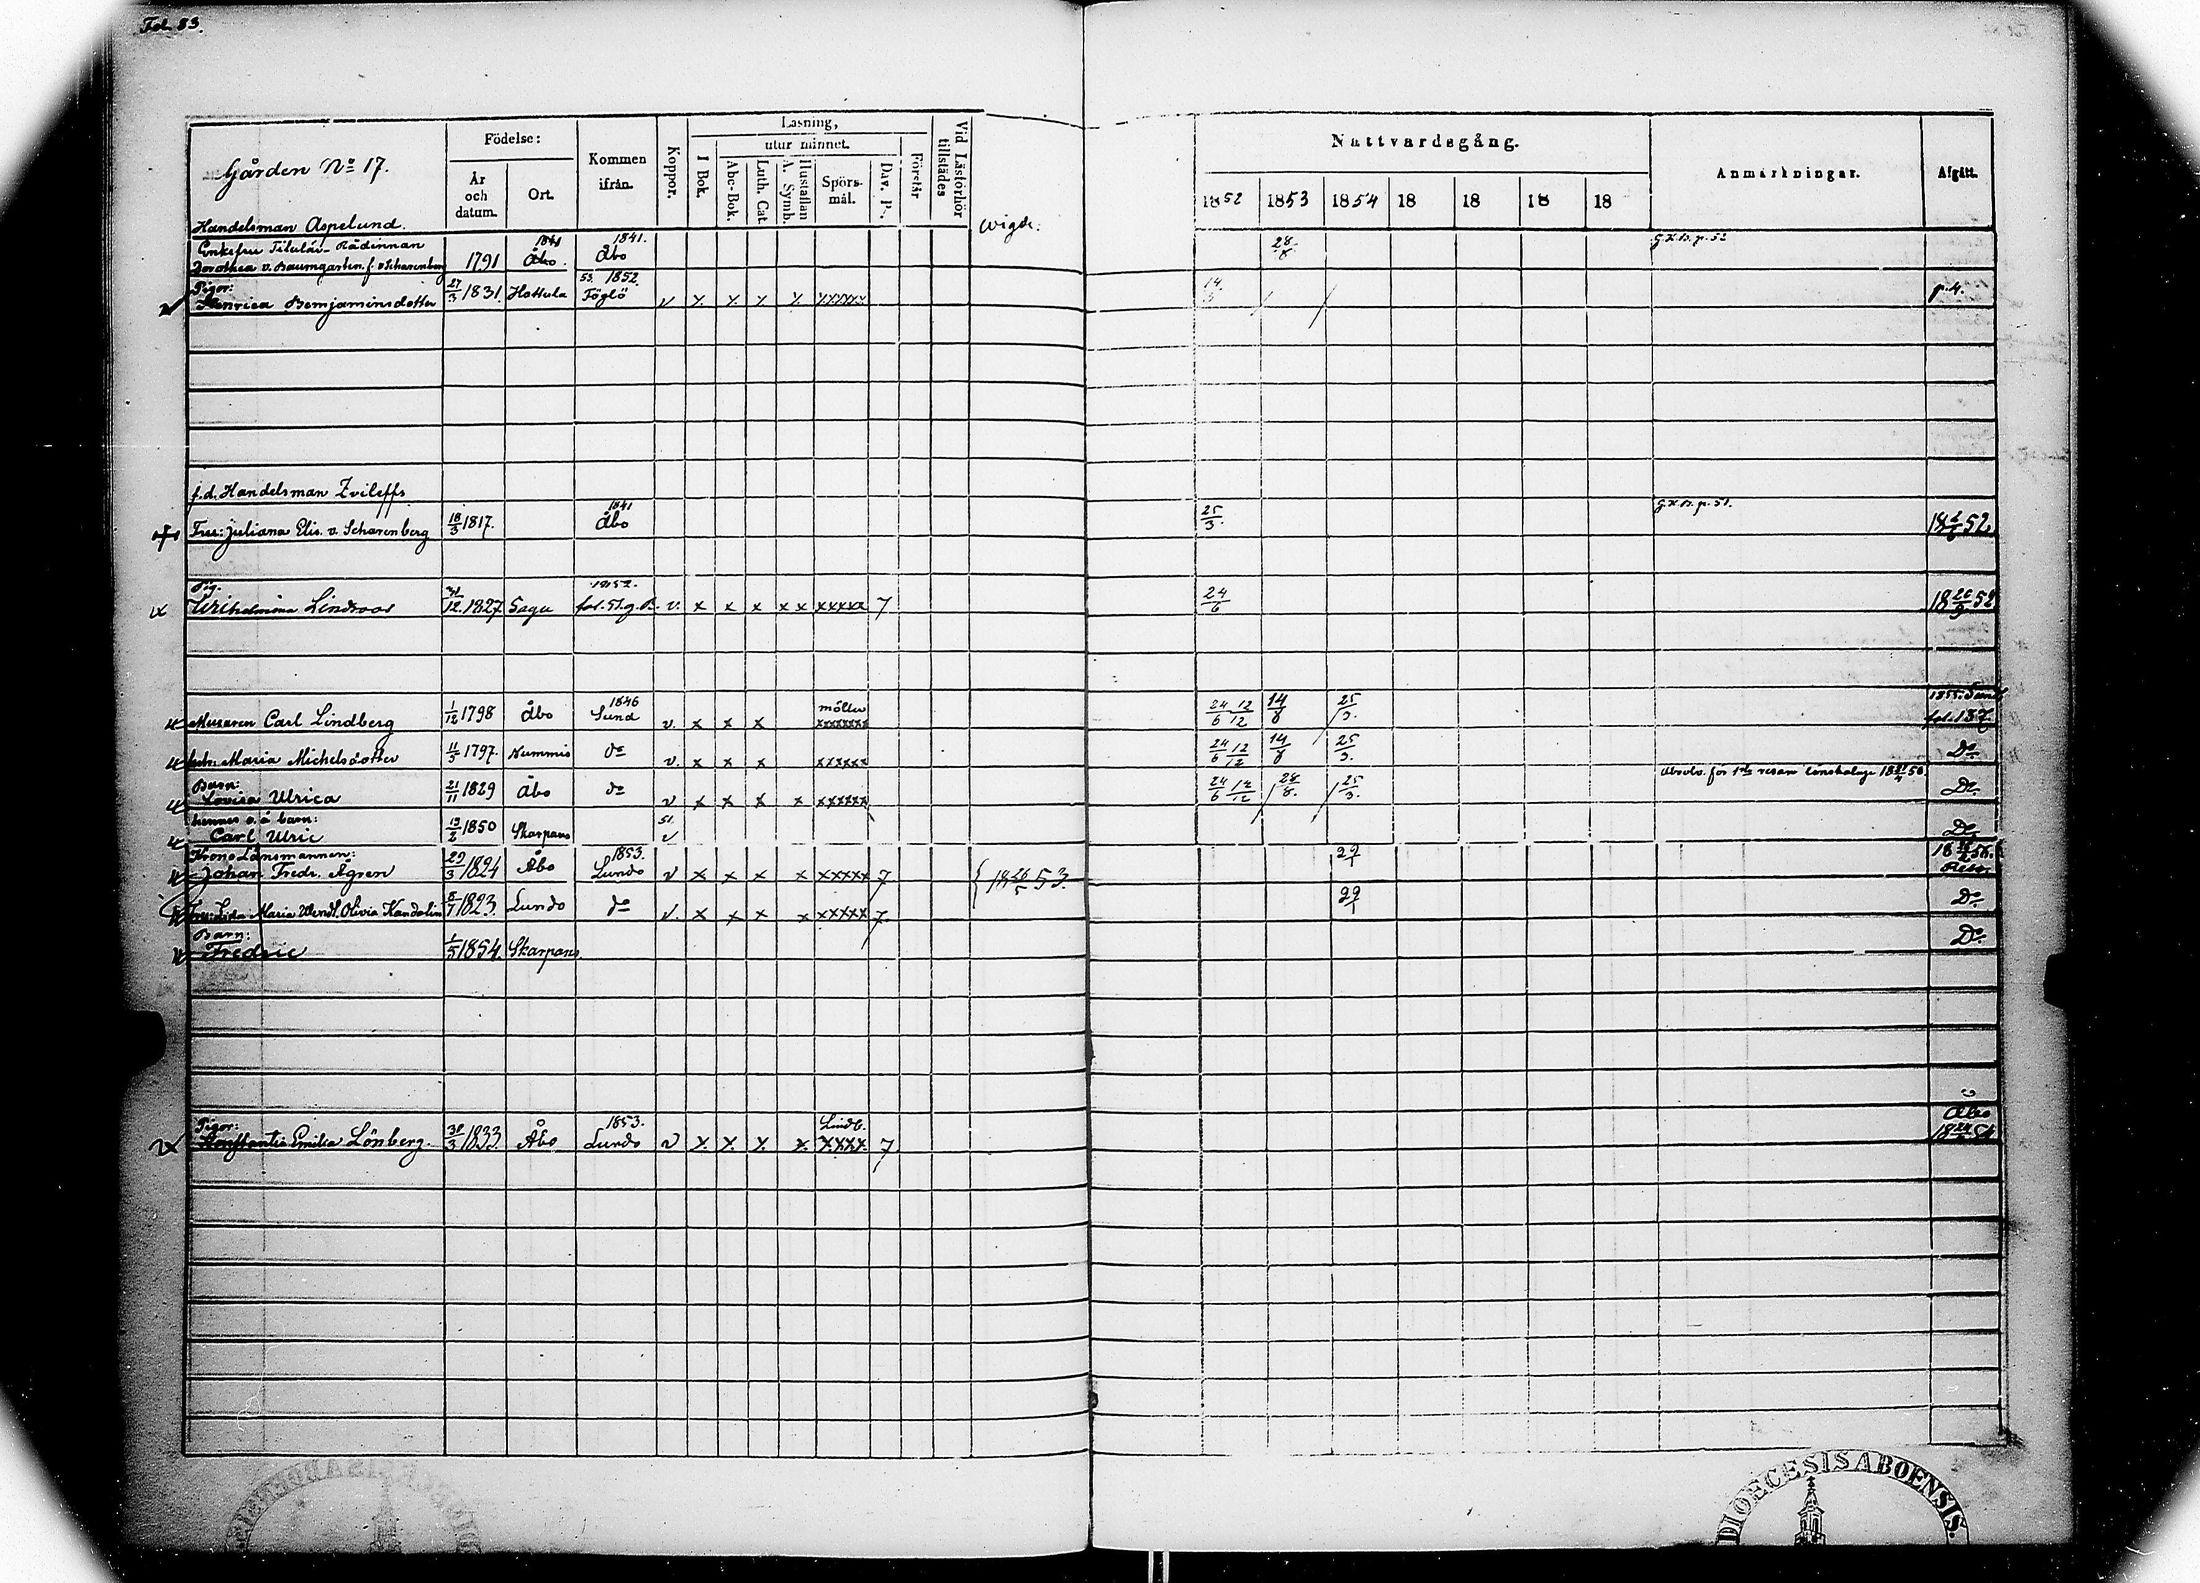 Fol. 83.
Gården No 17.
Födelse:
År och datum.
Ort.
Kommen ifrån.
Koppor.
Läsning,
I Bok.
utur minnet.
Abc-Bok.
Luth. Cat.
Hustaflan A. Symb.
Spörsmål.
Dav. P.
Förstår
Vid Läsförhör tillstädes
wigde:
Nattvardsgång.
1852 1853 1854 18 18 18 18
Anmärkningar.
Afgått.
Handelsman Aspelund.
Enkefru Titulär-Rådinnan 1841 1841.
Dorothea v. Baumgarten f. v Scharenberg 1791 Åbo. Åbo 28/8 g.K.B. p. 52
Pigor: 53. 1852.
Henrica Benjaminsdotter 27/3 1831. Hattula Föglö v x x x x xxxxx 14/3 p. 4.
f.d. Handelsman Zvileffs
Fru: Juliana Elis. v. Scharenberg 18/3 1817. 1841 Åbo 25/3. g.K.B. p. 51. 52
Pig. 1852.
Wilhelmina Lindroos 12. 1827. Sagu fol. 51. g. B. v. x x x x x xxxxx 7 24/6
Musaren Carl Lindberg 1/12 1798 Åbo 1846 Sund v. x x x xxxxxxx 24/6 12/12 14/8 25/3. 1855. Sund fol. 137.
Maria Michelsdotter 11/5 1797. Nummis do v. x x x xxxxxx 24/6 12/12 14/8 25/3. Do.
Barn:
Lovisa Ulrica 21/11 1829 Åbo do v x x x x xxxxxx 24/6 12/12 28/8. 25/3. Absolv. för 1sta resan lönskaläge Do.
hennes o.ä barn: 51.
Carl Ulric 13/2 1850 Skarpans v Do.
Krono Länsmannen: 1853.
Johan Fredr. Ågren 29/3 1824 Åbo Lundo v x x x x xxxxx 7 {18 26/5 53. 29/1
Maria Olivia Kandolin 8/7 1823. Lundo do v. x x x x xxxxx 7. 29/1 Do.
Barn:
Fredric 1/5 1854. Skarpans Do.
Pigor: 1853. Lindb. Åbo
Konstantia Emilia Lönberg. 3 1833. Åbo Lundo v x. x. x. x. xxxx. 7
DIOECESIS ABOENSIS.